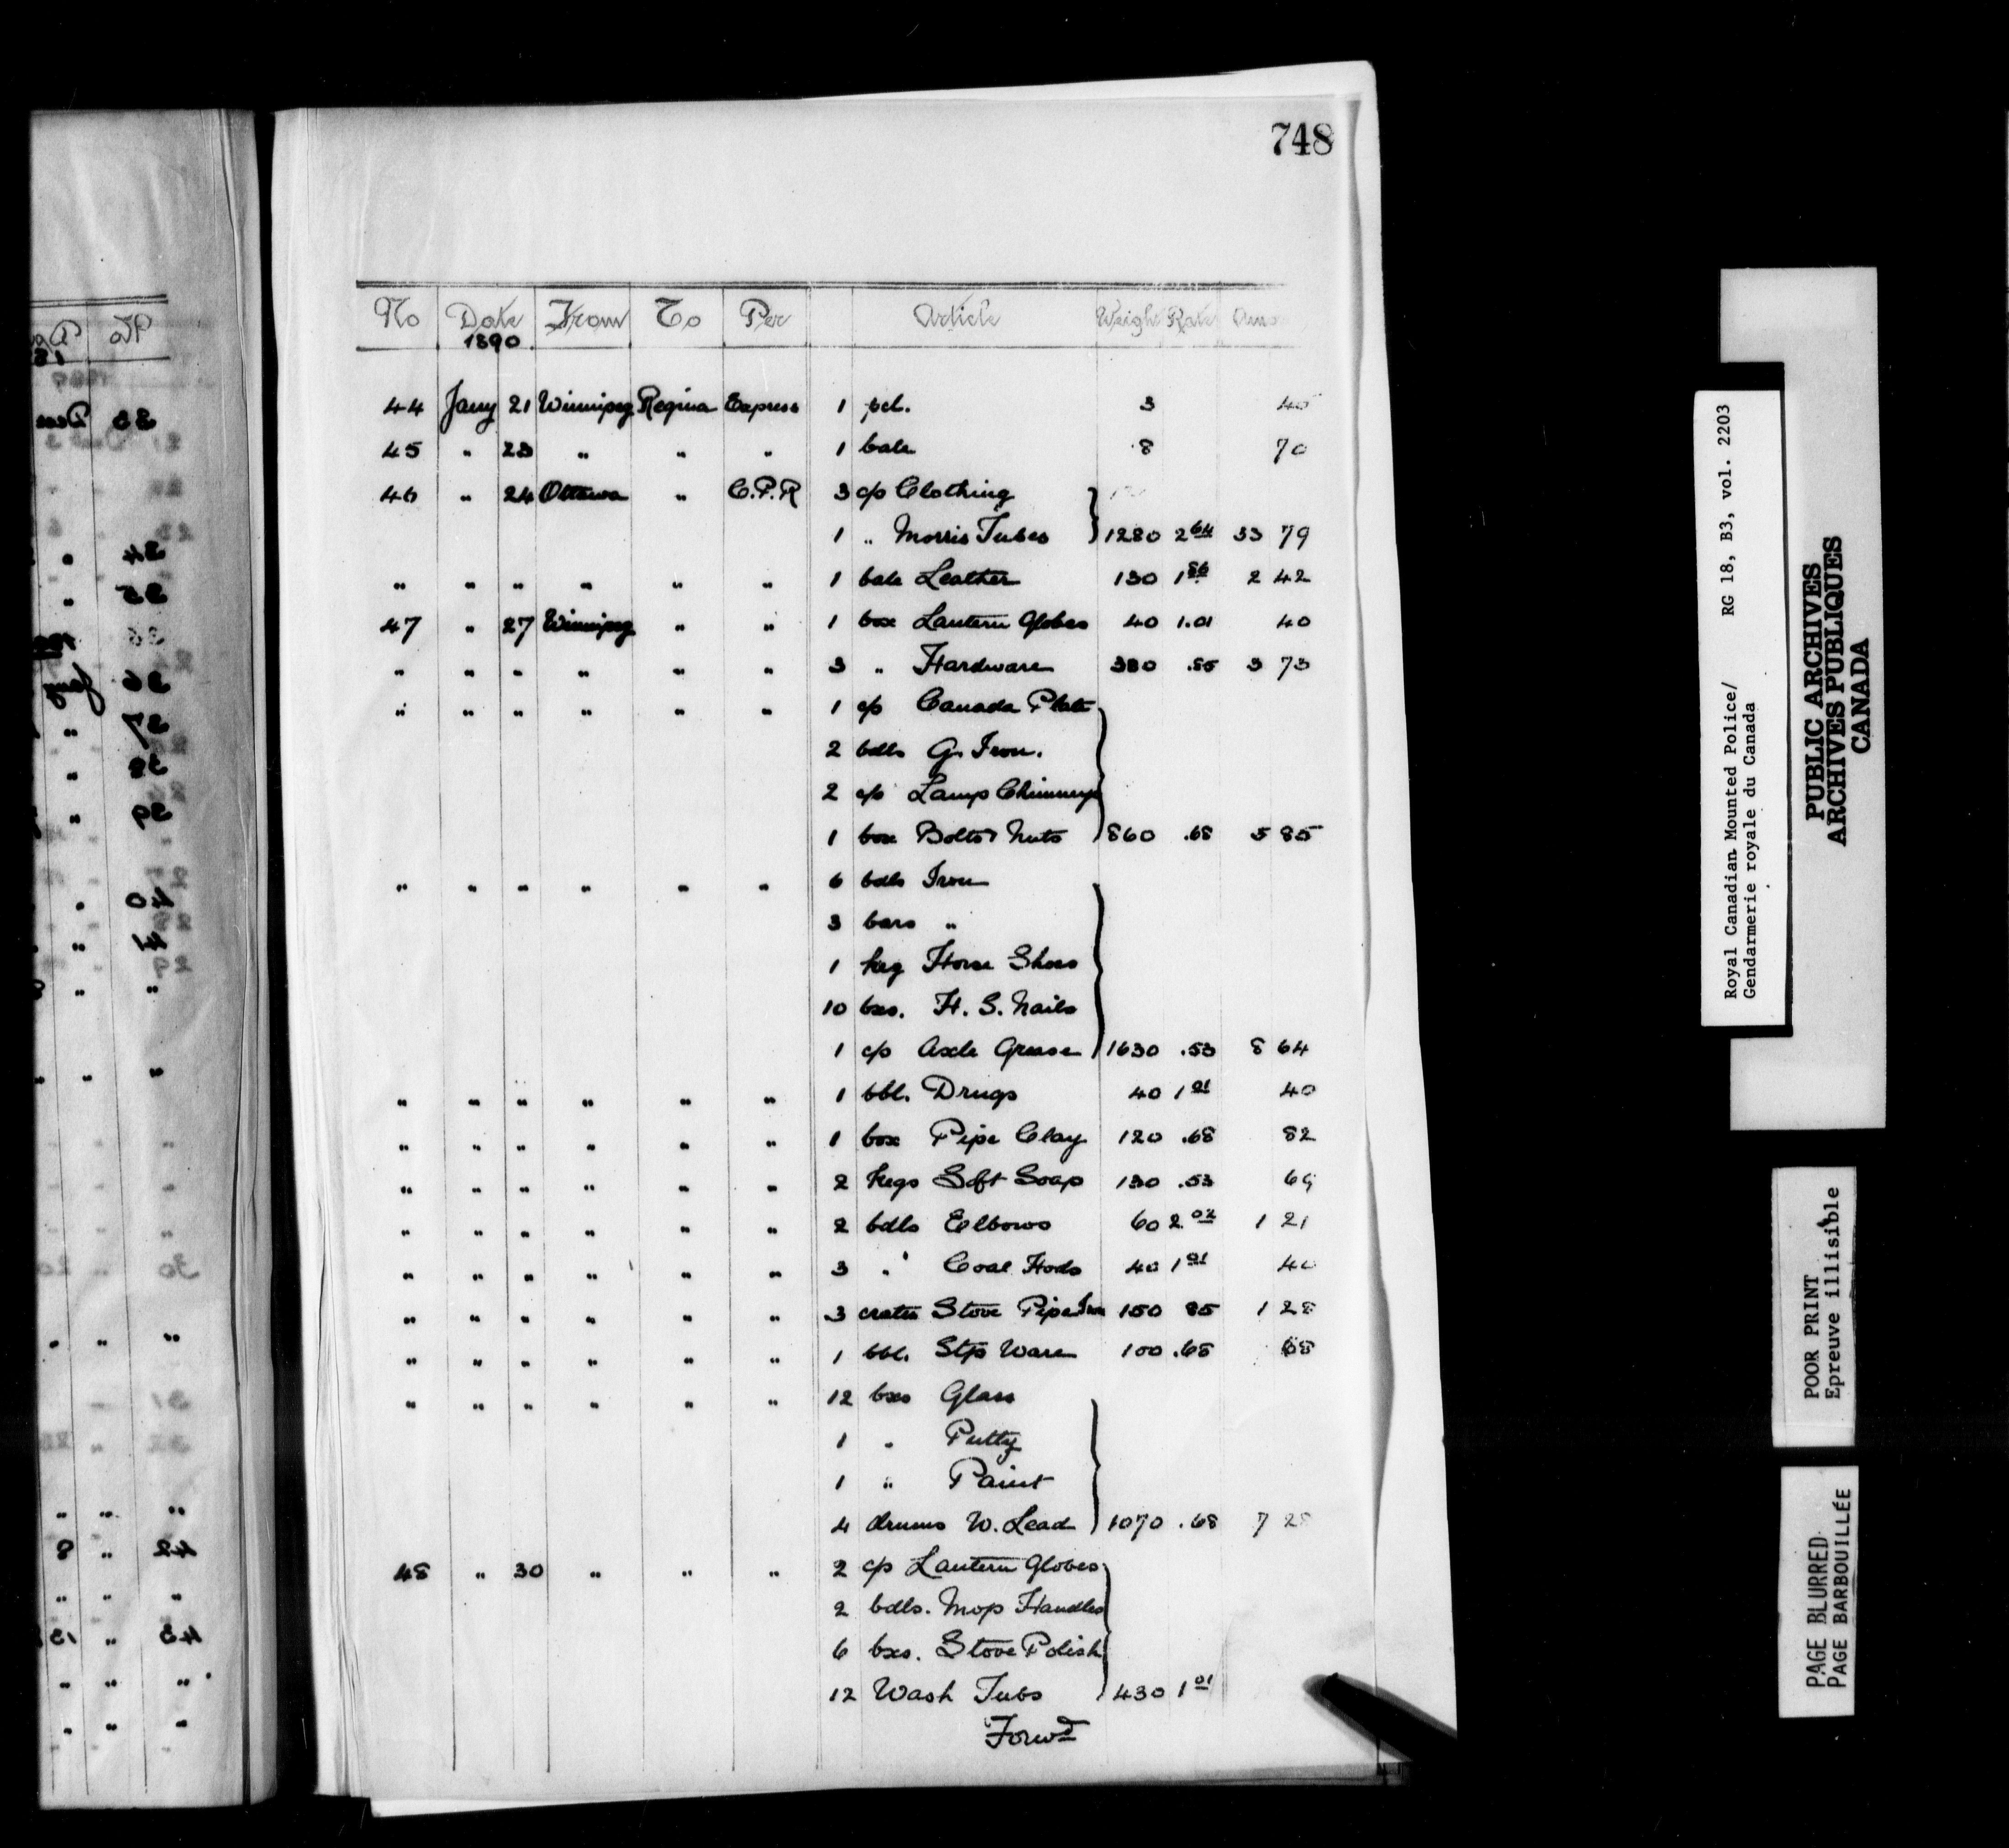 748
No Date From To Per Article Weight Rate
1890
44 Jany 21 Winnipeg Regina Express 1 pcl. 3 45
45 " 23 " " " 1 bale 8 70
46 " 24 Ottawa " C.P.R 3 c/s Clothing
1 " Morris Tubes 1280 2 64 33 79
" " " " " " 1 bale Leather 130 1 86 2 42
47 " 27 Winnipeg " " 1 box Lantern Globes 40 1.01 40
" " " " " " 3 " Hardware 380 .85 3 73
" " " " " " 1 c/s Canada Plate
2 bdls G. Iron.
2 c/s Lamp Chimneys
1 box Bolts & Nuts 860 .68 5 85
" " " " " " 6 bdls Iron
3 bars "
1 keg Horse Shoes
10 bxs. H. S. Nails
1 c/s Axle Grease 1630 .53 8 64
" " " " " " 1 bbl. Drugs 40 1 01 40
" " " " " " 1 box Pipe Clay 120 .68 82
" " " " " " 2 kegs Soft Soap 130 .53 69
" " " " " " 2 bdls Elbows 60 2 02 1 21
" " " " " " 3 " Coal Hods 40 1 01 40
" " " " " " 3 crates Stove Pipe Iron 150 85 1 28
" " " " " " 1 bbl. Stp Ware 100 .68 68
" " " " " " 12 bxs Glass
1 " Putty
1 " Paint
4 drums W. Lead 1070 .68 7 28
48 " 30 " " " 2 c/s Lantern Globes
2 bdls. Mop Handles
6 bxs. Stove Polish
12 Wash Tubs 430 1 01
Forwd
Royal Canadian Mounted Police/ RG 18, B3, vol. 2203
Gendarmerie royale du Canada
PUBLIC ARCHIVES
ARCHIVES PUBLIQUES
CANADA
POOR PRINT
Epreuve illisible
PAGE BLURRED
PAGE BARBOUILLÉE